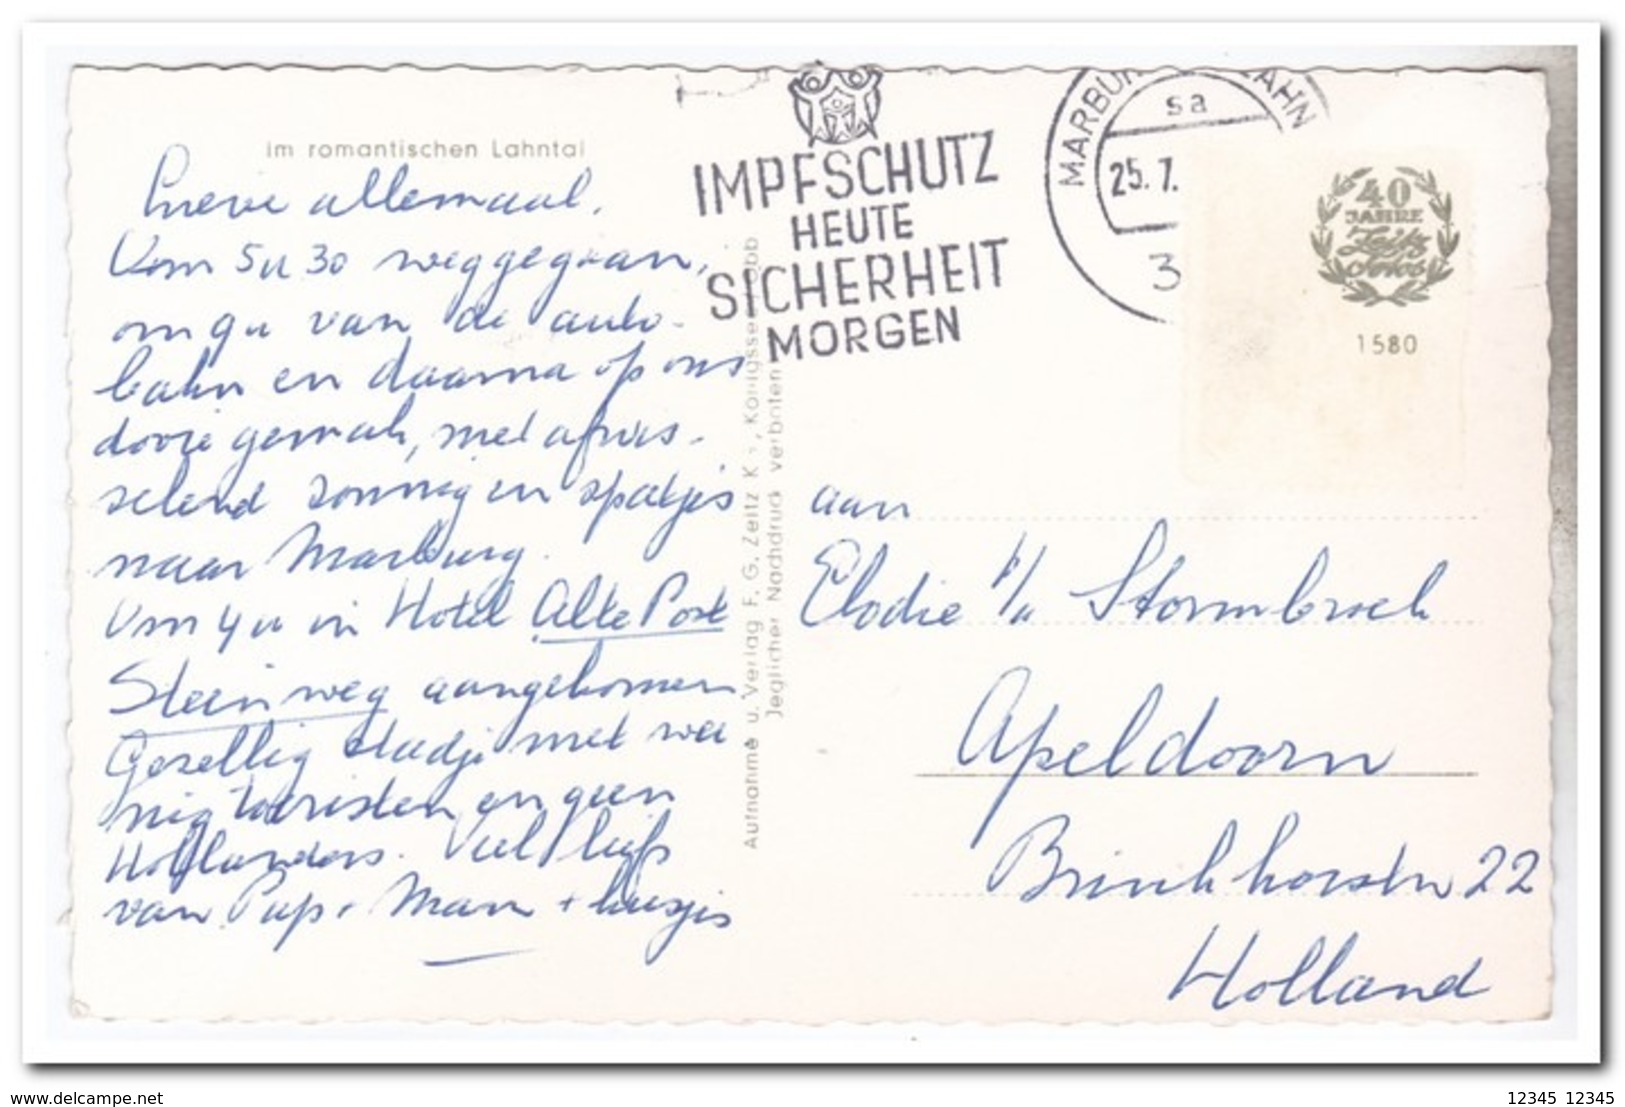 im romantischen Lahntal
Lieve allemaal.
Vom 5u 30 weggegaan,
om 9u van de auto-
bahn en daarna op ons
dooie gemak, met afwis-
selend zonnig en spatjes
naar Marburg.
Om 4u in Hotel Alte Post
Steinweg aangekomen
Gezellig stadje met wei
nig toeristen en geen
Hollanders. Veel liefs
van Pap, Mam + kusjes
Aufnahme u. Verlag F. G. Zeitz K , Königssee
Jeglicher Nachdruck verboten
IMPFSCHUTZ
HEUTE
SICHERHEIT
MORGEN
MARBURG LAHN
sa
25.7.
3
40
JAHRE
Zeitz
Fotos
1580
aan
Elodie v/d Stormbroek
Apeldoorn
Brinkhorsten 22
Holland
my-bernardo.delcampe.net
12345 12345